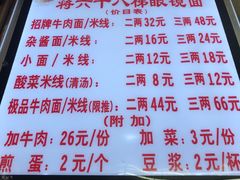 蒋六十八梯眼镜面
(价目表)
招牌牛肉面/米线 二两32元 三两48元
杂酱面/米线 二两16元 三两24元
小面/米线 二两12元 三两18元
酸菜米线(清汤) 二两8元 三两12元
极品牛肉面/米线(限推) 二两44元 三两66元
(附加)
加牛肉·26元/份 加菜·3元/份
煎蛋·2元/个 豆浆·2元/杯